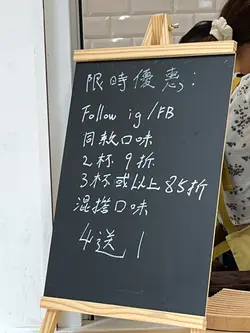 限時優惠：
Follow ig/FB
同款口味
2杯 9折
3杯或以上 85折
混搭口味
4送1